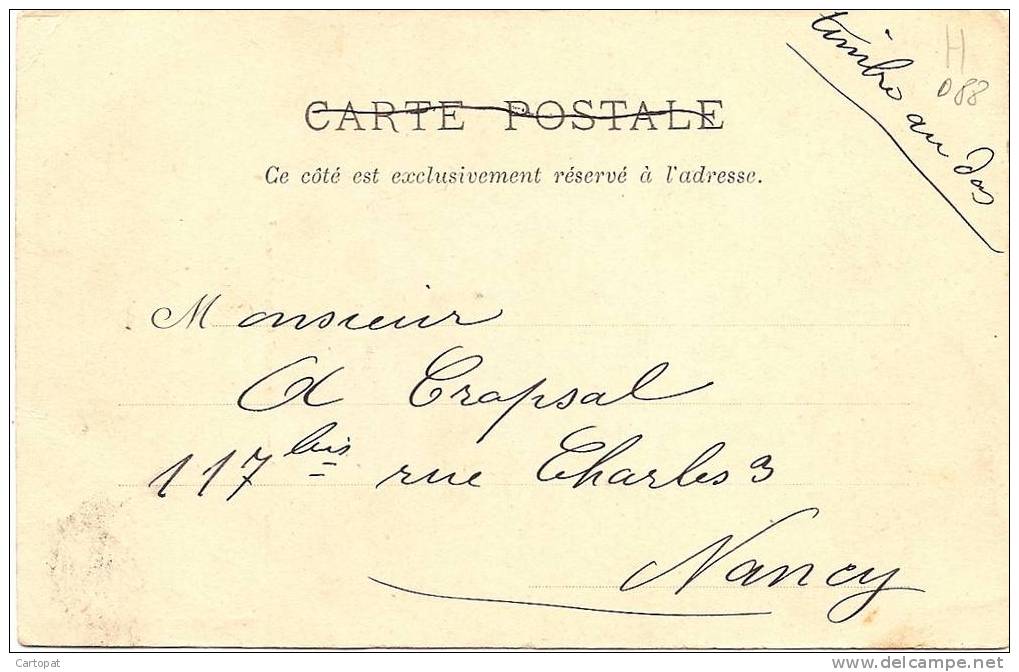 timbre au dos
H
088
CARTE POSTALE
Ce côté est exclusivement réservé à l'adresse.
Monsieur
A Crapsal
117 bis rue Charles 3
Nancy
Cartopat
www.delcampe.net